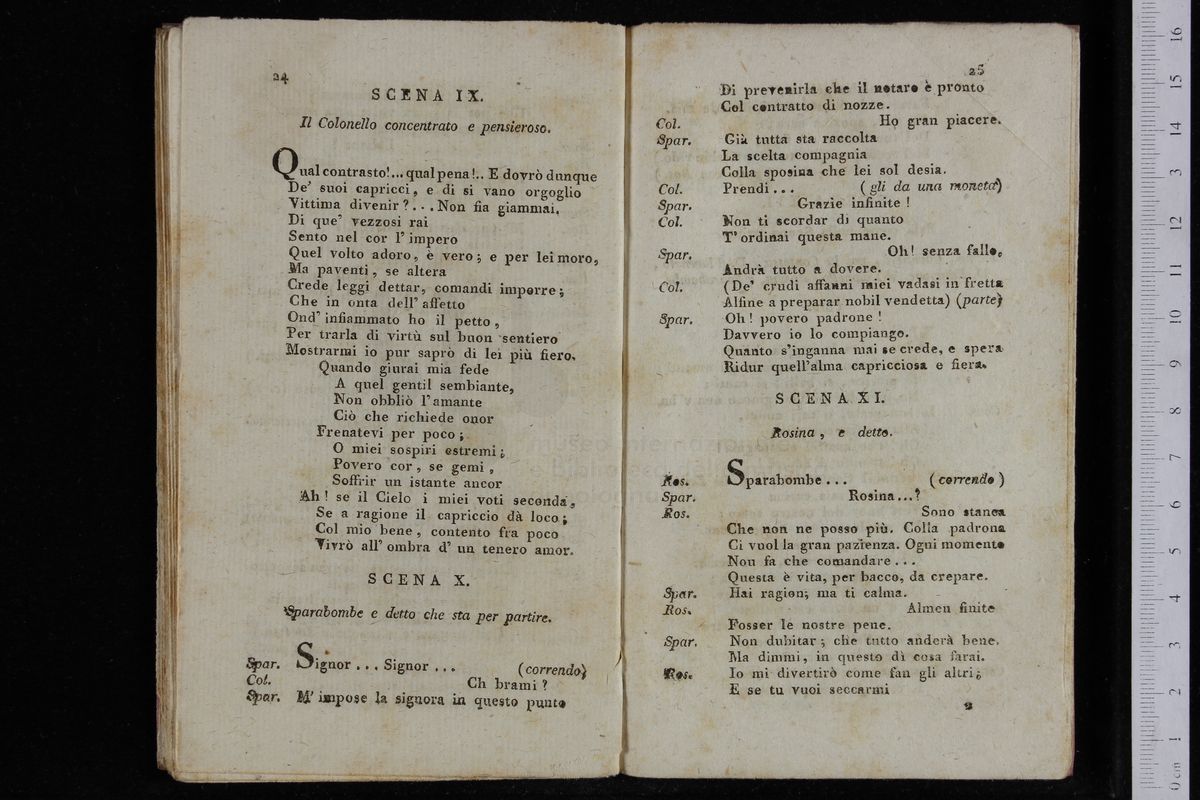 24
SCENA IX.
Il Colonello concentrato e pensieroso.
Qual contrasto!... qual pena!.. E dovrò dunque
De' suoi capricci, e di si vano orgoglio
Vittima divenir?... Non fia giammai.
Di que' vezzosi rai
Sento nel cor l'impero
Quel volto adoro, è vero; e per lei moro,
Ma paventi, se altera
Crede leggi dettar, comandi imporre;
Che in onta dell' affetto
Ond' infiammato ho il petto,
Per trarla di virtù sul buon sentiero
Mostrarmi io pur saprò di lei più fiero.
Quando giurai mia fede
A quel gentil sembiante,
Non obbliò l'amante
Ciò che richiede onor
Frenatevi per poco;
O miei sospiri estremi;
Povero cor, se gemi,
Soffrir un istante ancor
Ah! se il Cielo i miei voti seconda,
Se a ragione il capriccio dà loco;
Col mio bene, contento fra poco
Vivrò all' ombra d' un tenero amor.
SCENA X.
Sparabombe e detto che sta per partire.
Spar. Signor... Signor... (correndo)
Col. Ch brami?
Spar. M' impose la signora in questo punto
25
Di prevenirla che il notaro è pronto
Col contratto di nozze.
Col. Ho gran piacere.
Spar. Già tutta sta raccolta
La scelta compagnia
Colla sposina che lei sol desia.
Col. Prendi... (gli da una moneta)
Spar. Grazie infinite!
Col. Non ti scordar di quanto
T' ordinai questa mane.
Spar. Oh! senza fallo,
Andrà tutto a dovere.
Col. (De' crudi affanni miei vadasi in fretta
Alfine a preparar nobil vendetta) (parte)
Spar. Oh! povero padrone!
Davvero io lo compiango.
Quanto s'inganna mai se crede, e spera
Ridur quell'alma capricciosa e fiera.
SCENA XI.
Rosina, e detto.
Ros. Sparabombe... (correndo)
Spar. Rosina...?
Ros. Sono stanca
Che non ne posso più. Colla padrona
Ci vuol la gran pazienza. Ogni momento
Non fa che comandare...
Questa è vita, per bacco, da crepare.
Spar. Hai ragion; ma ti calma.
Ros. Almen finite
Fosser le nostre pene.
Spar. Non dubitar; che tutto anderà bene.
Ma dimmi, in questo dì cosa farai.
Ros. Io mi divertirò come fan gli altri;
E se tu vuoi seccarmi
2
0 cm 1 2 3 4 5 6 7 8 9 10 11 12 13 14 15 16